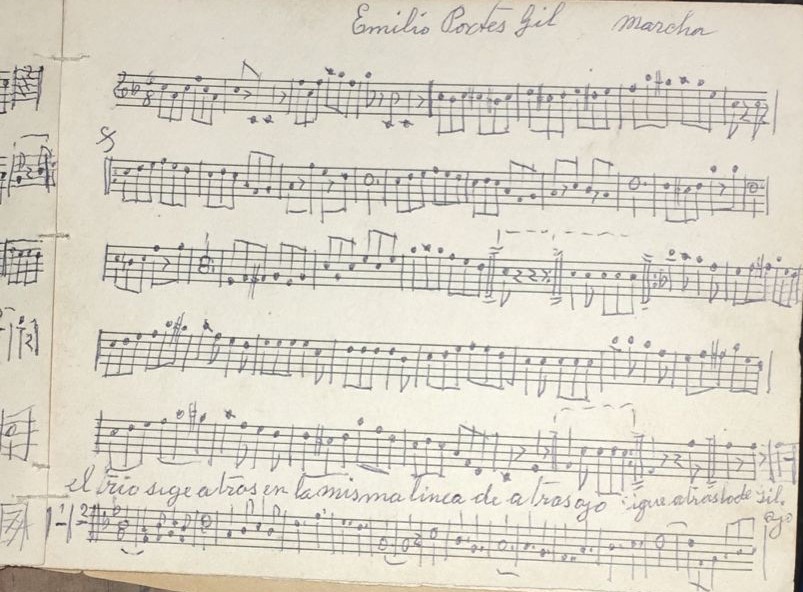 Emilio Portes Gil marcha
6
8
el trio sige atras en la misma linea de atras ojo sigue atras lo de sil.
ojo
2